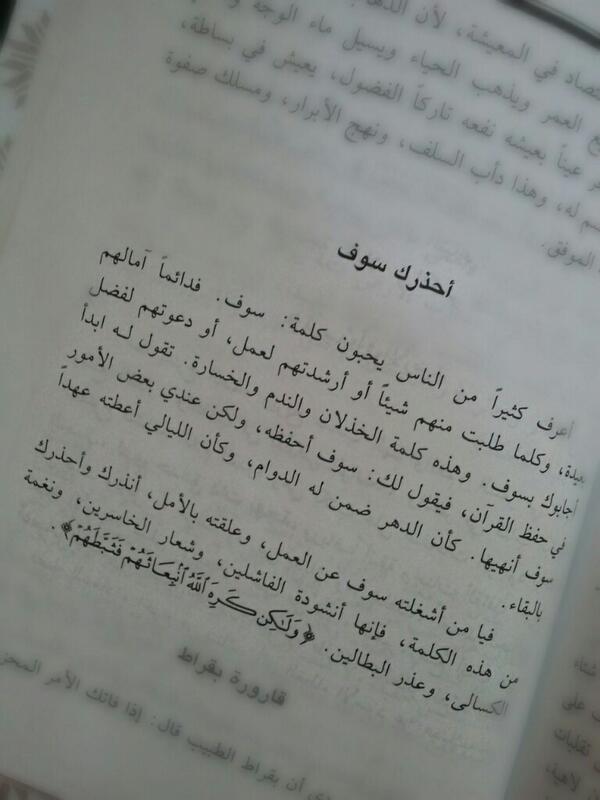 تصاد في المعيشة، لأن
العمر ويذهب الحياء ويسيل ماء الوجه
عيناً بعيشه نفعه تاركاً الفضول، يعيش في بساطة،
له، وهذا دأب السلف، ونهج الأبرار، ومسلك صفوة
الموفق.
أحذرك سوف
أعرف كثيراً من الناس يحبون كلمة: سوف. فدائماً آمالهم
بعيدة، وكلما طلبت منهم شيئاً أو أرشدتهم لعمل، أو دعوتهم لفضل
أجابوك بسوف. وهذه كلمة الخذلان والندم والخسارة. تقول له ابدأ
في حفظ القرآن، فيقول لك: سوف أحفظه، ولكن عندي بعض الأمور
سوف أنهيها. كأن الدهر ضمن له الدوام، وكأن الليالي أعطته عهداً
بالبقاء.
فيا من أشغلته سوف عن العمل، وعلقته بالأمل، أنذرك وأحذرك
من هذه الكلمة، فإنها أنشودة الفاشلين، وشعار الخاسرين، ونغمة
الكسالى، وعذر البطالين. ﴿وَلَٰكِن كَرِهَ ٱللَّهُ ٱنۢبِعَاثَهُمْ فَثَبَّطَهُمْ﴾.
قارورة بقراط
أن بقراط الطبيب قال: إذا فاتك الأمر
شتاء
على
تقلبات
لاهية،